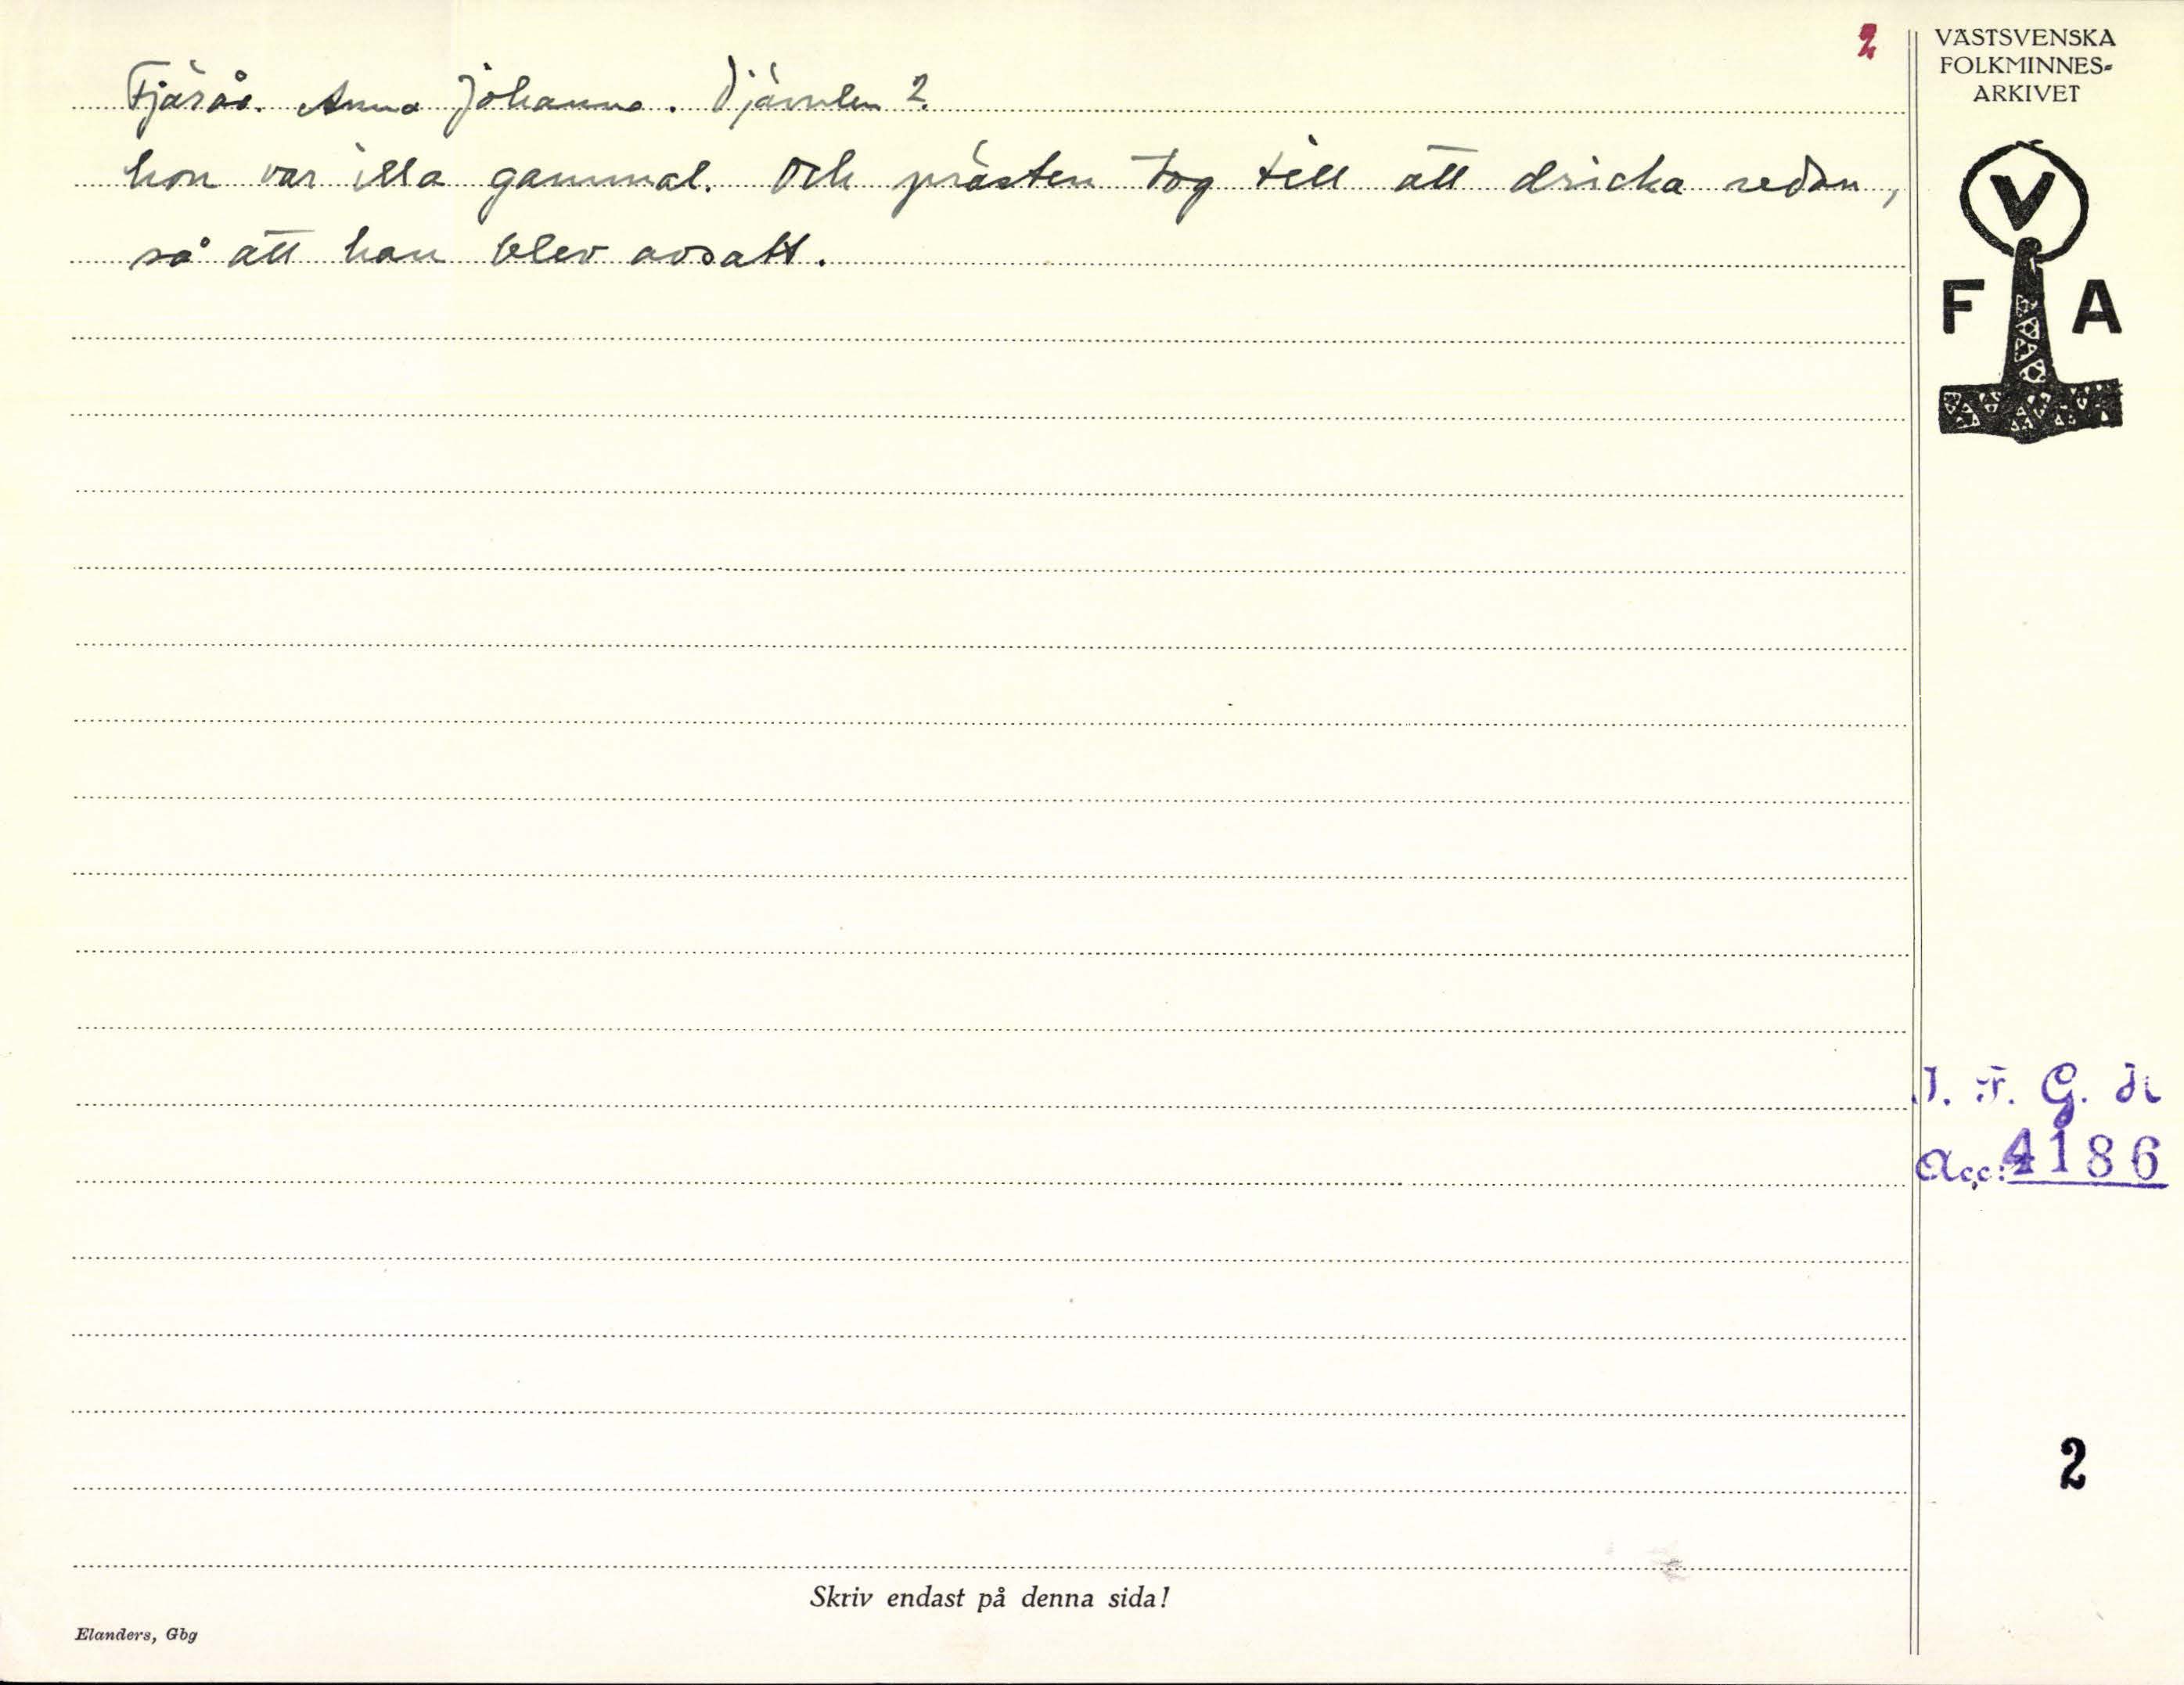 2
Fjärås. Anna Johanna. Djävulen 2.
hon var illa gammal. Och prästen tog till att dricka sedan,
så att han blev avsatt.
VÄSTSVENSKA
FOLKMINNES-
ARKIVET
V
F A
I. F. G. H
Acc: 4186
2
Skriv endast på denna sida!
Elanders, Gbg